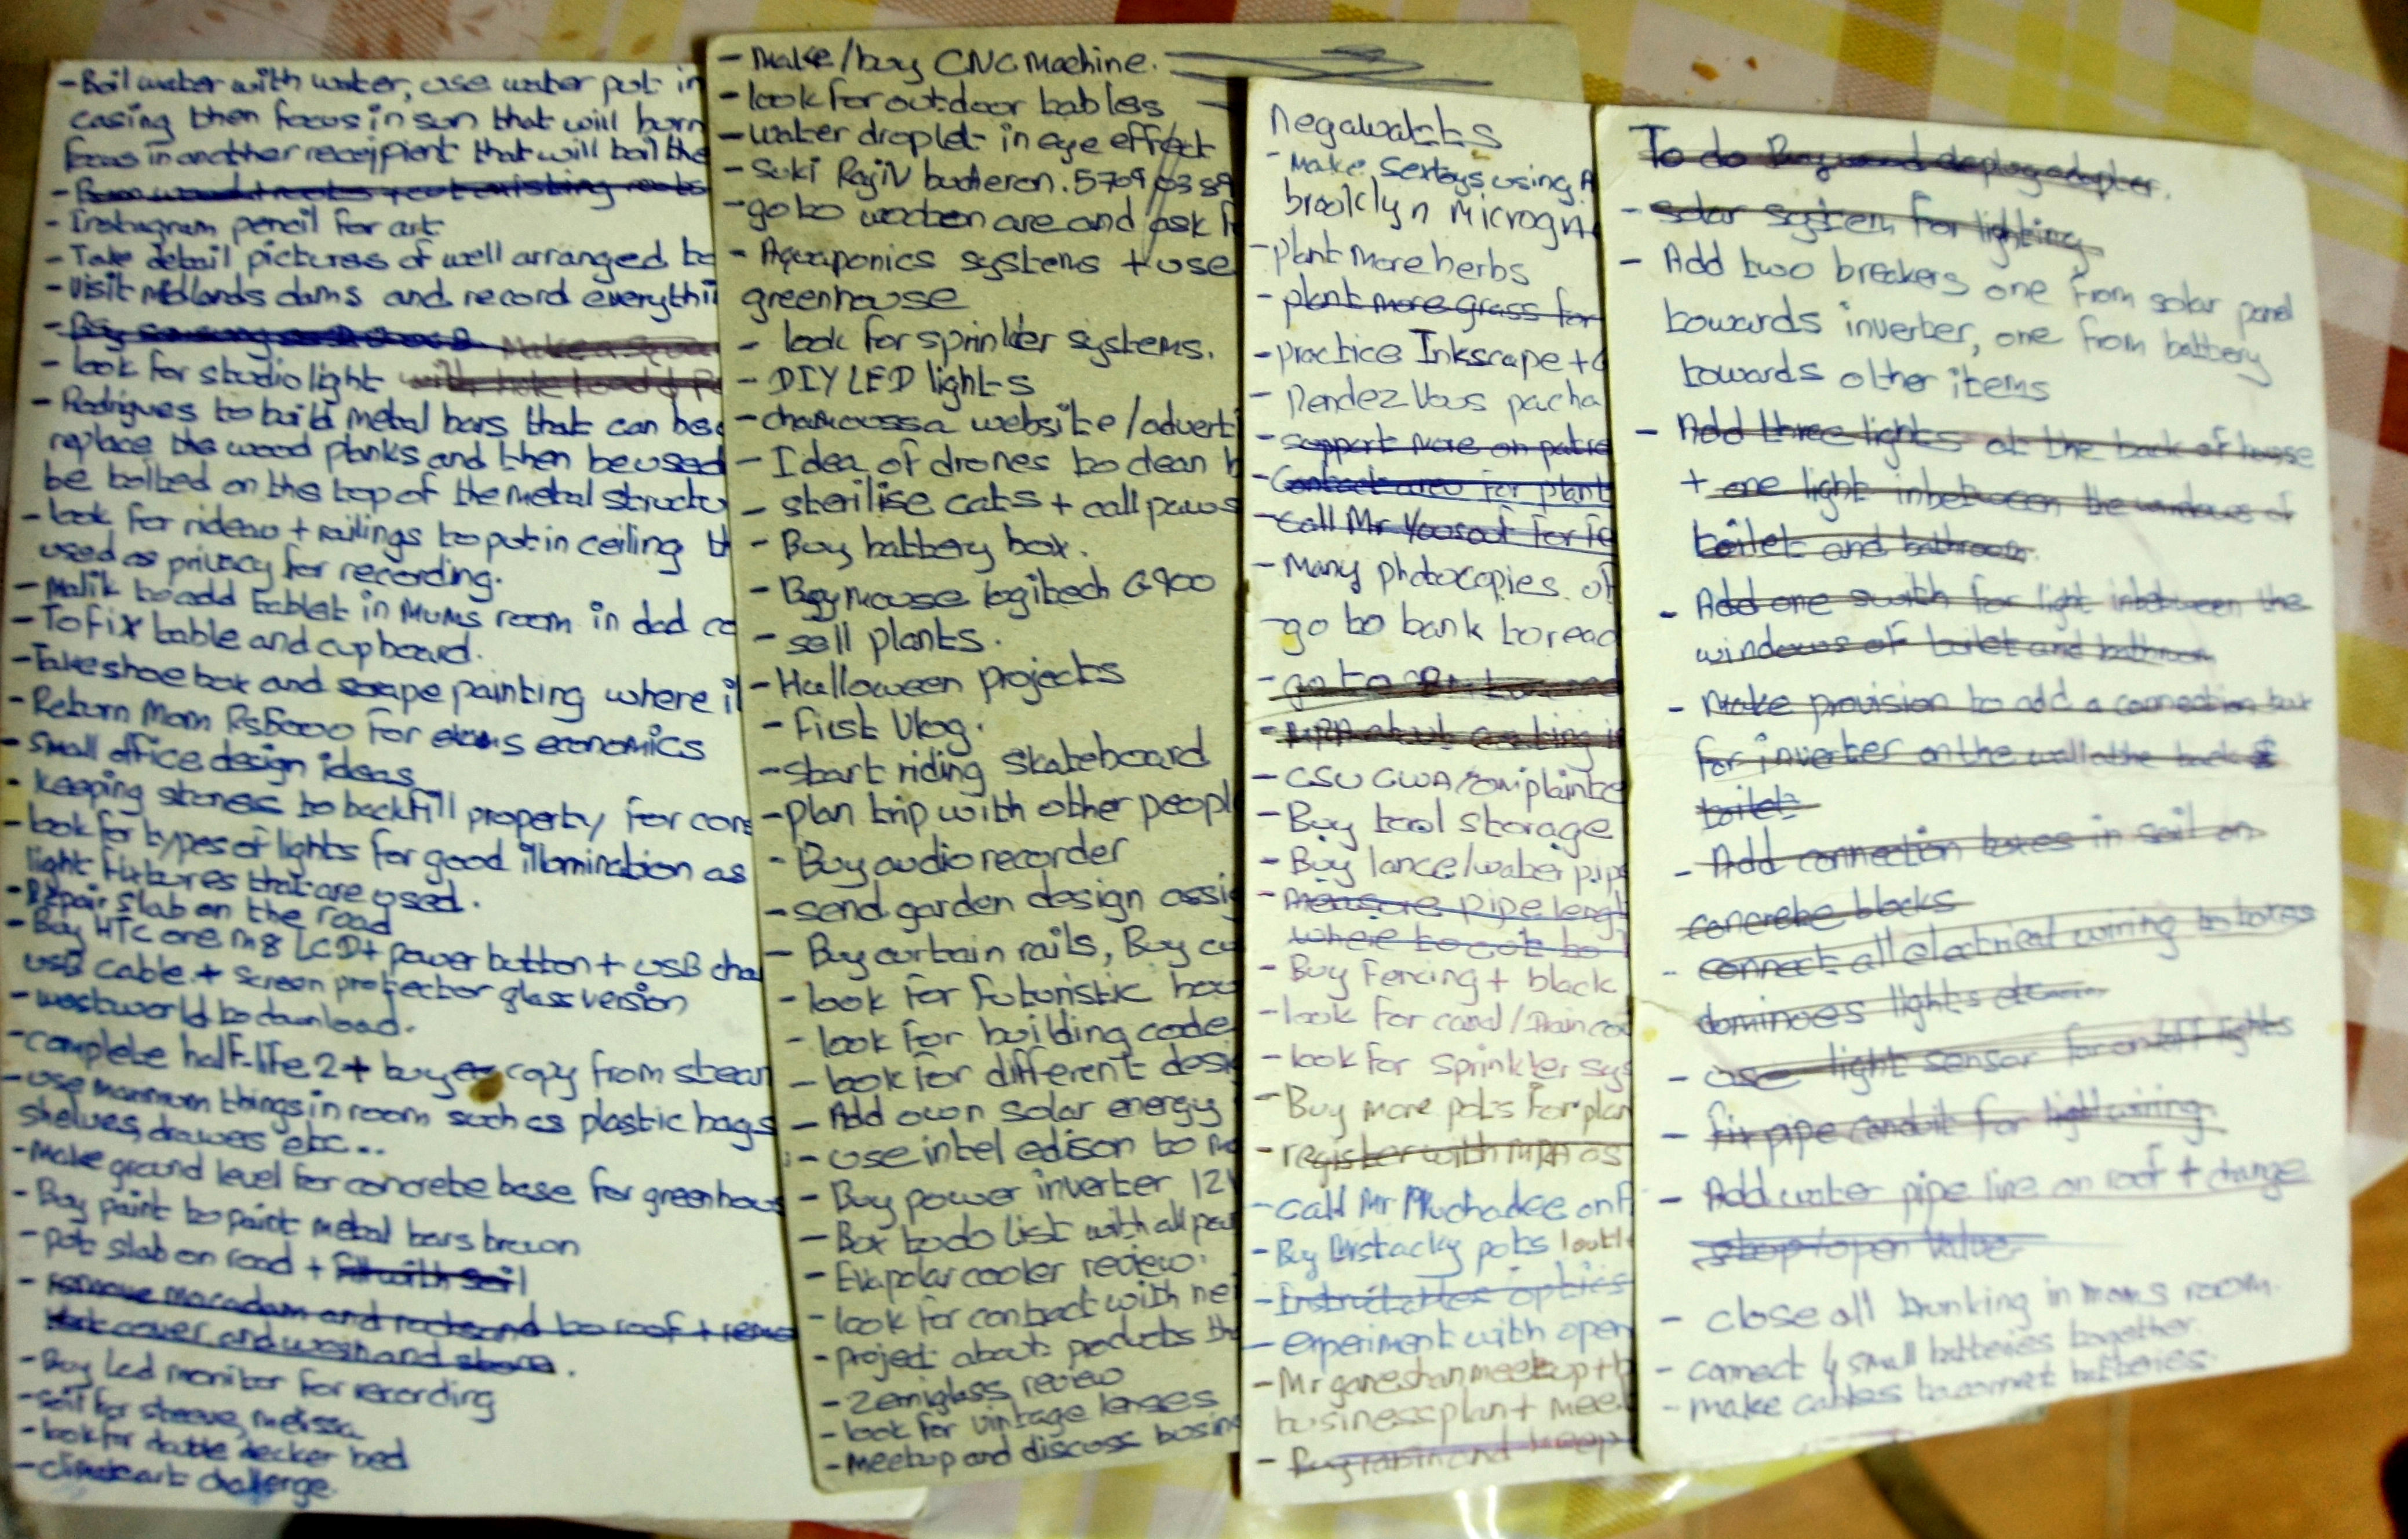 - Boil water with water, use water put in
casing then focus in sun that will burn
focus in another recejpient that will boil the
- existing roots
- Instagram pencil for art
- Take detail pictures of well arranged
- visit midlands dams and record everythi
- Make a
- look for studio light with hole
- Rodrigues to build metal bars that can be
replace the wood planks and then be used
be bolted on the top of the metal structu
- look for rideau + railings to put in ceiling th
used as privacy for recording.
- Malik to add tablet in Mums room in dad
- To fix table and cupboard.
- Take shoe box and scrape painting where i
- Return Mom Rs5000 for exams economics
- small office design ideas
- keeping stones to backfill property for cons
- look for types of lights for good illumination as
light fixtures that are used.
- Repair slab on the road
- Buy HTC one m8 LCD + power button + USB cha
USB cable + screen protector glass version
- westworld to download.
- complete half-life 2 + buy copy from steam
- use maximum things in room such as plastic bags
shelves, drawers etc...
- Make ground level for concrete base for greenhou
- Buy paint to paint metal bars brown
- put slab on road + fill with soil
- remove macadam and rocksand to roof +
cover and wash and store.
- Buy lcd monitor for recording
- soit for steeve, melissa
- look for double decker bed
- climate art challenge.
- Make/buy CNC Machine.
- look for outdoor tables
- water droplet in eye effect
- Suki Rajiv bucheron. 5709
- go to wooten are and ask f
- Aquaponics systems + use
greenhouse
- look for sprinkler systems.
- DIY LED lights
- chamoussa website/advert
- Idea of drones to clean
- sterilise cats + call paws
- Buy battery box.
- Buy mouse logitech G900
- sell plants.
- Halloween projects
- First Vlog.
- start riding skateboard
- plan trip with other peopl
- Buy audio recorder
- send garden design assig
- Buy curtain rails, Buy cu
- look for futuristic hou
- look for building code
- look for different desi
- Add own solar energy
- use intel edison to
- Buy power inverter 12V
- Box to do list with all
- Evapolar cooler review.
- look for contact with nei
- project about products th
- Zemiglass review
- look for vintage lenses
- Meetup and discuss busin
Negawatts
- Make sextoys using A
brooklyn microgr
- plant more herbs
- plant more grass for
- practice Inkscape +
- Rendez Vous pacha
- support more on patre
- Contact for plant
- Call Mr Yousouf for
- Many photocopies of
- go to bank to read
- go to
- MRA about
- CSU CWA complainte
- Buy tool storage
- Buy lance/water pipe
- Measure pipe lengt
where to cut to
- Buy Fencing + black
- look for canal/Drain
- look for sprinkler sys
- Buy more pots for plan
- register with MRA as
- call Mr Muchadee on
- Buy Mrstacky pots
- Instructables optics
- experiment with open
- Mr ganeshan meetup +
business plan + mee
- Buy and keep
To do Buy and deplug adapter.
- solar system for lighting
- Add two breakers one from solar panel
towards inverter, one from battery
towards other items
- Add three lights at the back of house
+ one light inbetween the windows of
toilet and bathroom.
- Add one swith for light inbetween the
windows of toilet and bathroom
- Make provision to add a connection box
for inverter on the wall at the back
toilet.
- Add connection boxes in soil on
concrete blocks
- connect all electrical wiring to boxes
dominoes lights etc
- use light sensor for on/off lights
- fix pipe conduit for light wiring.
- Add water pipe line on roof + change
stop/open valve
- close all trunking in moms room.
- connect 4 small batteries together.
- make cables to connect batteries.